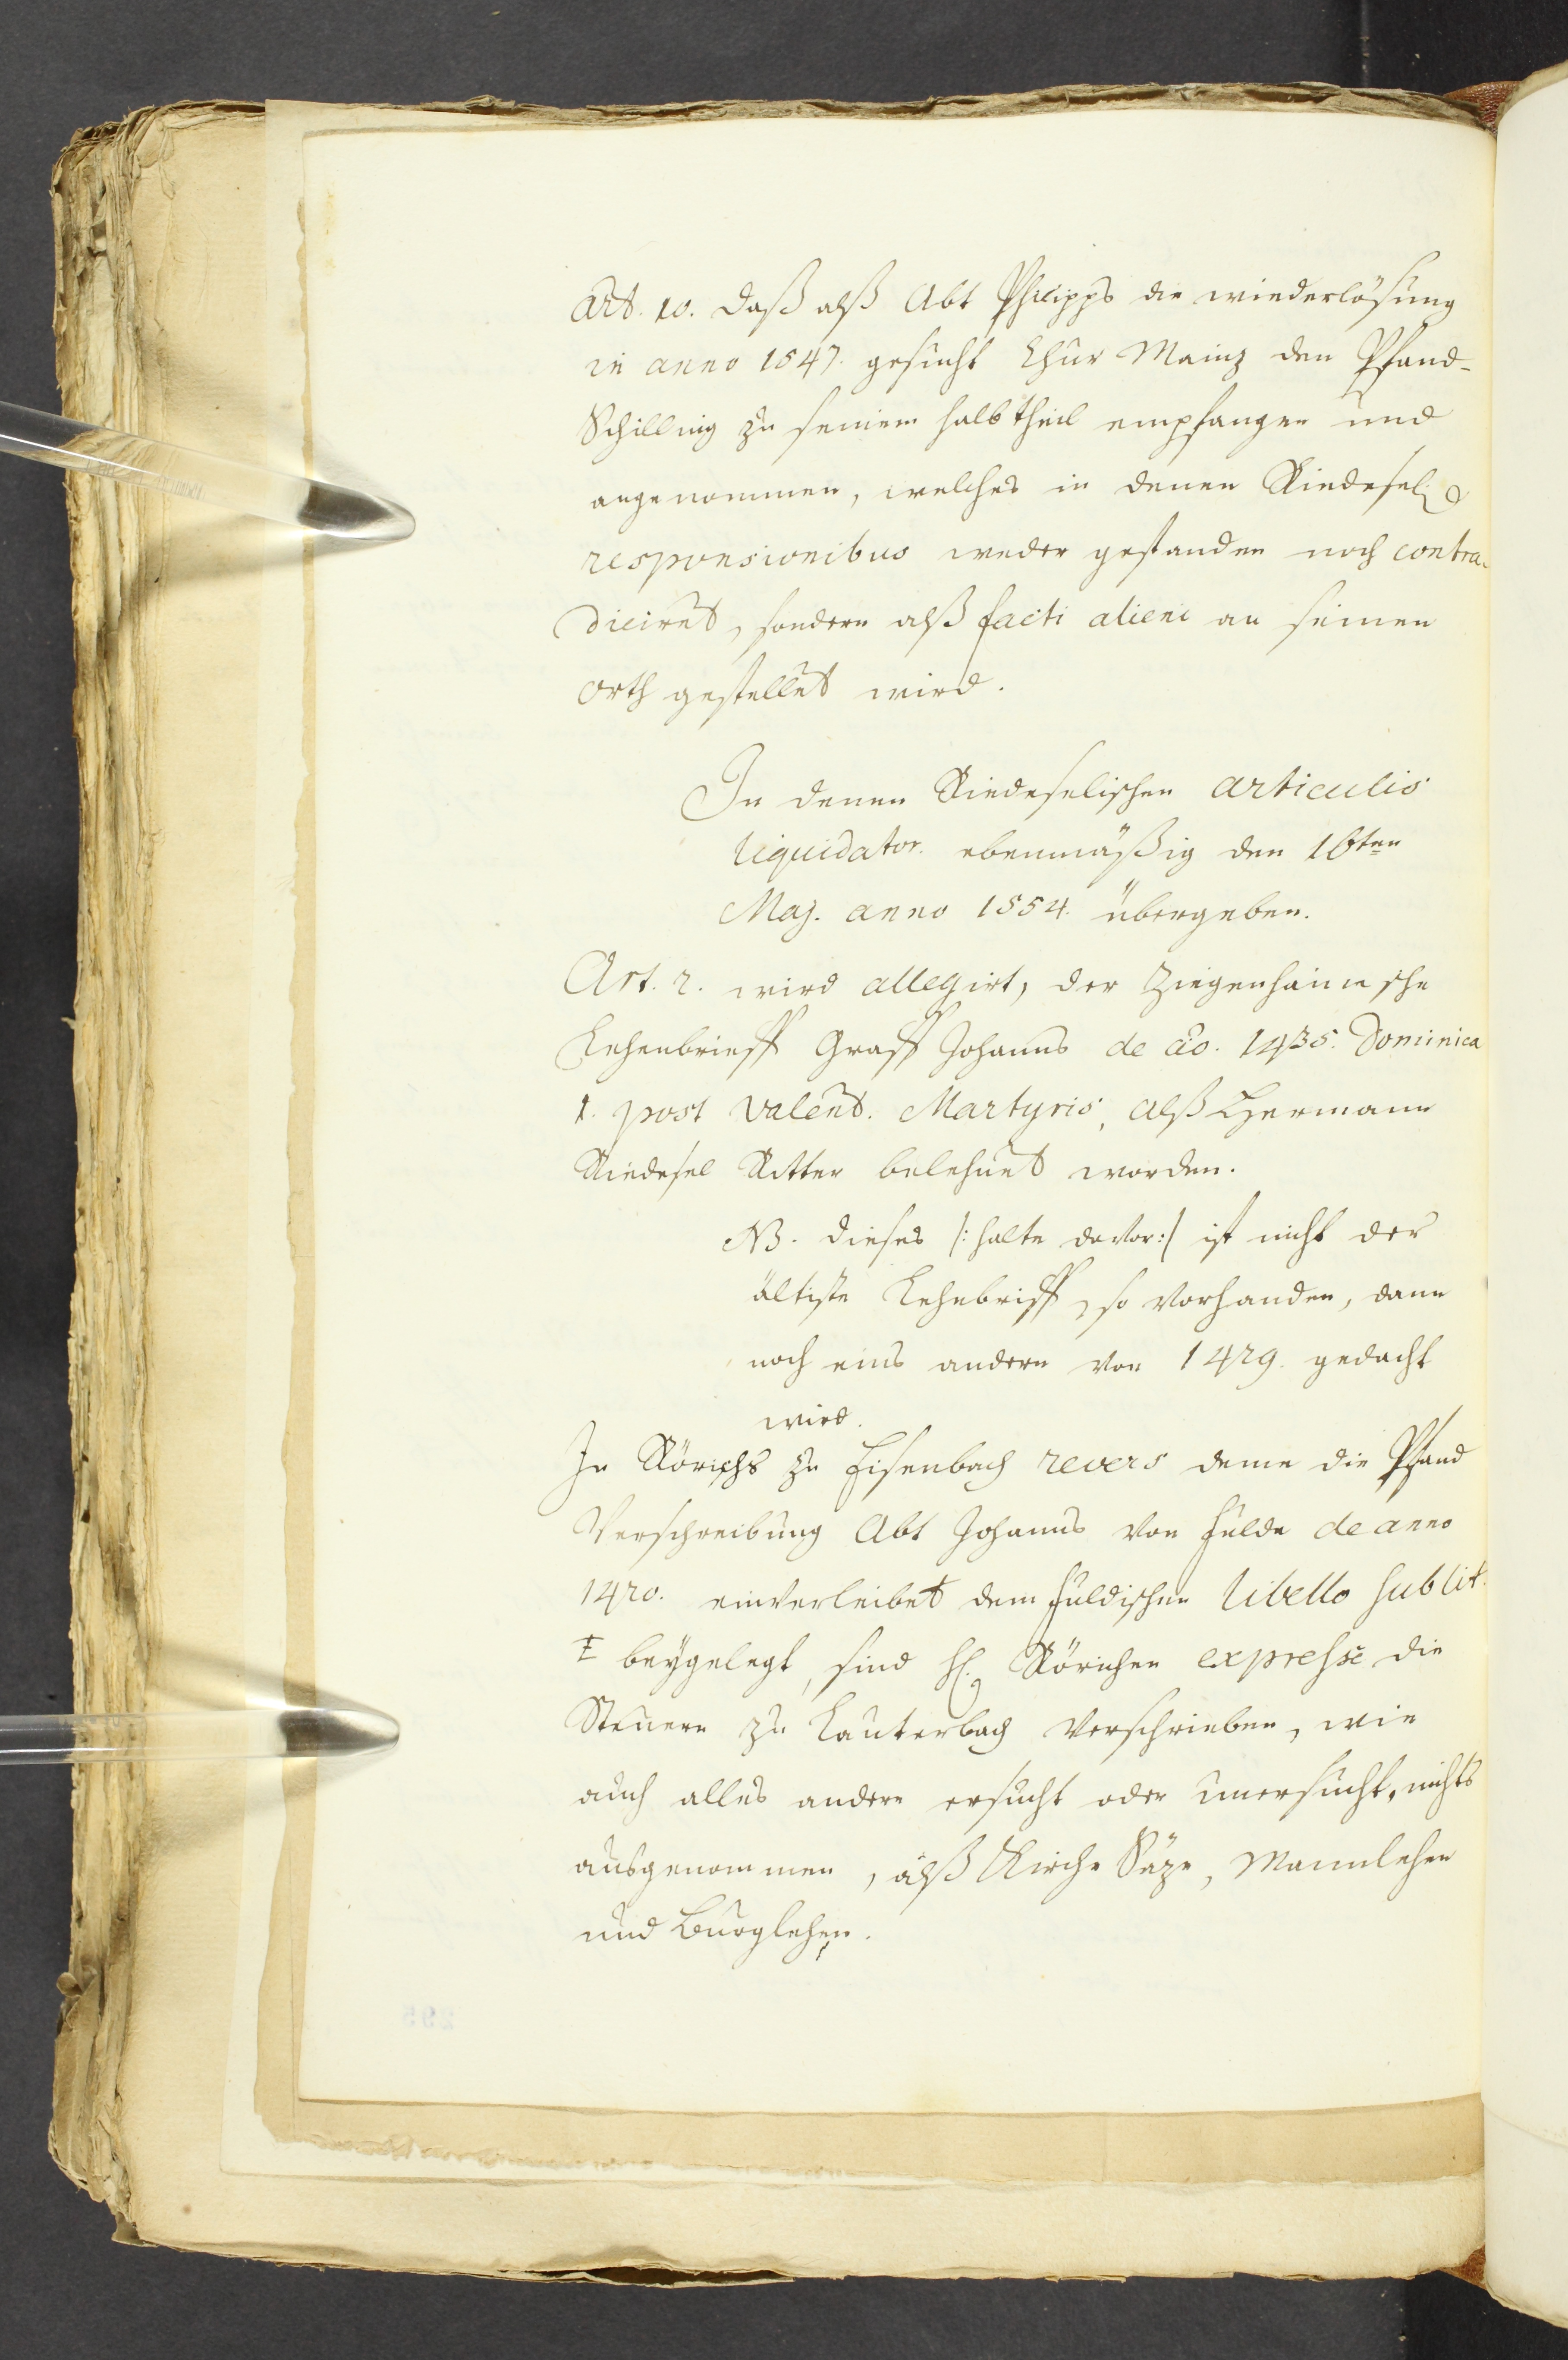 Art. 10. daß alß Abt Philipps die wiederlösung
in anno 1547. gesucht Chur Mainz den Pfand-
Schilling zu seinem halbtheil empfangen und
angenommen, welches in denen Riedesel.
responsionibus weder gestanden noch contra-
diciret, sondern alß facti alieni an seinen
Orth gestellet wird.
In denen Riedeselischen articulis
liquidator. ebenmäßig den 16ten
Maj. anno 1554. übergeben.
Art. 2. wird allegirt, der Ziegenhainische
Lehenbrieff Graff Johanns de ao. 1435. Dominica
1. post Valent. Martyris, alß Hermann
Riedesel Ritter belehnet worden.
NB. dieses /: halte davor :/ ist nicht der
ältiste Lehnbrieff, so vorhanden, dann
noch eins andern von 1429. gedacht
wird.
In Rörichs zu Eisenbach revers deme die Pfand
Verschreibung Abt Johanns von Fulda de anno
1420. einverleibet dem Fuldischen libello sub lit.
beygelegt, sind H. Rörichen expresse die
Steuern zu Lauterbach verschrieben, wie
auch alles andere ersucht oder unersucht, nichts
ausgenommen, alß Kirche Säze, Mannlehen
und Burglehen.